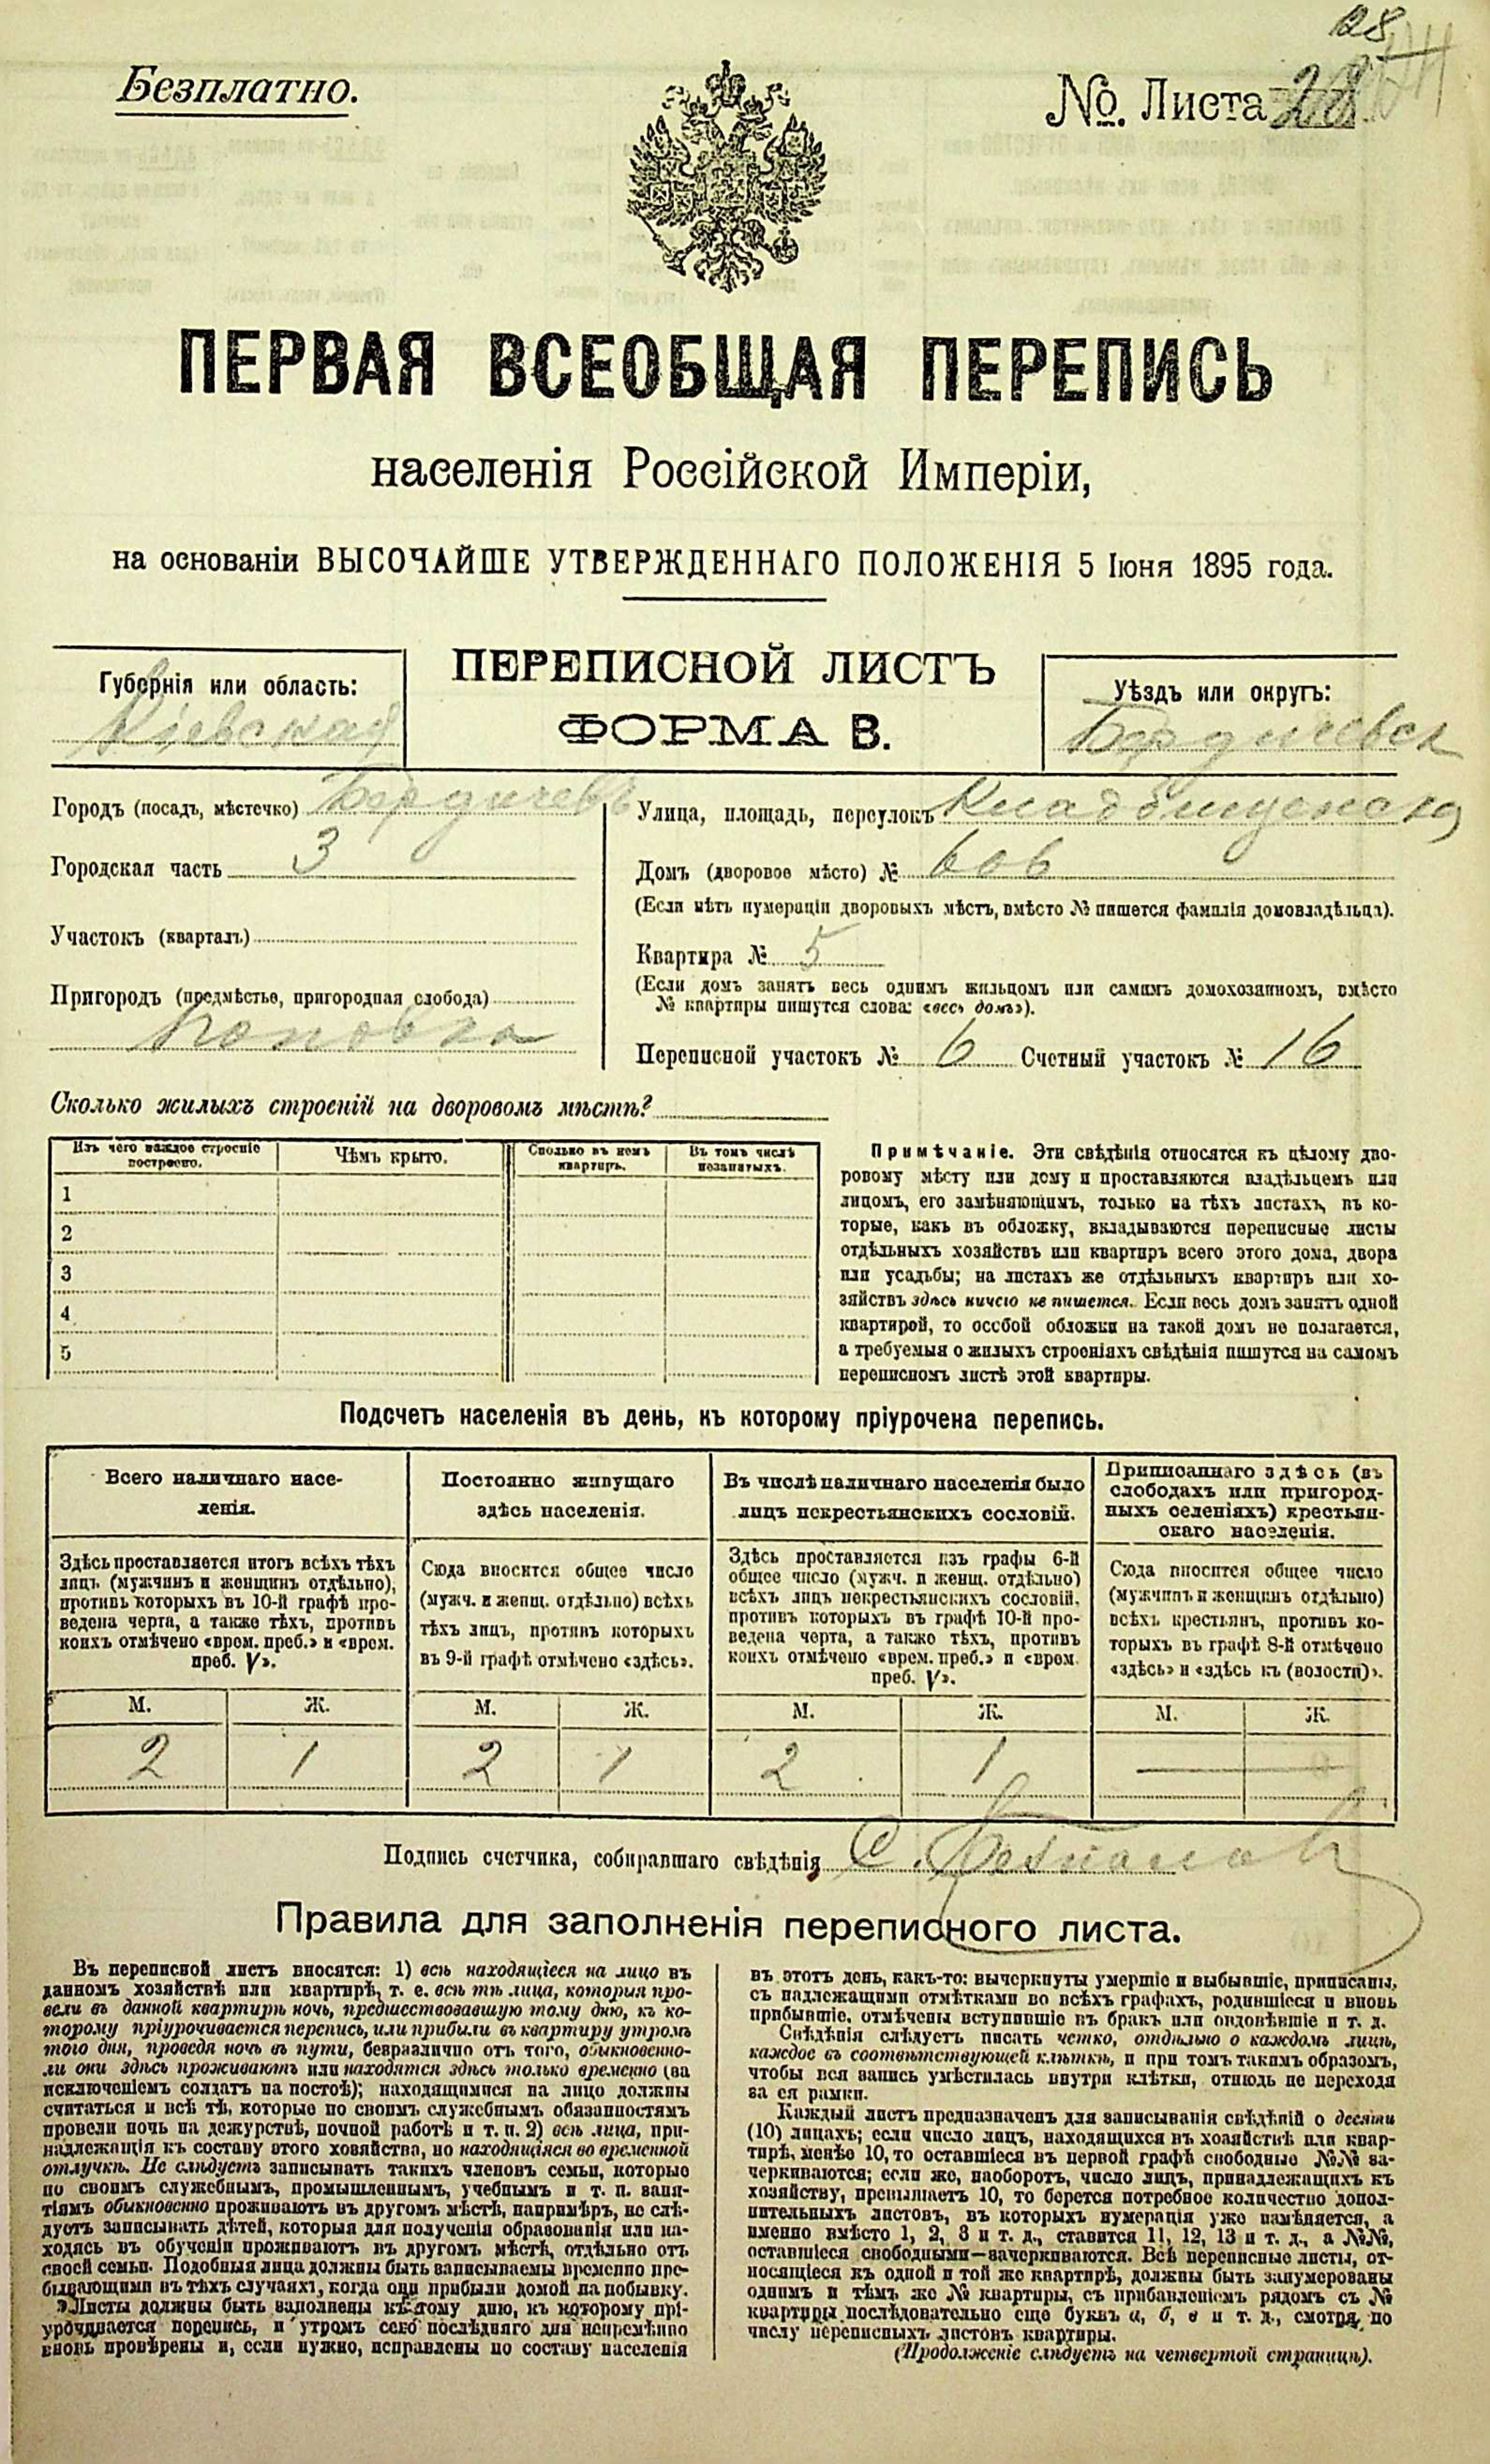 28
Безплатно.
№. Листа 28
ПЕРВАЯ ВСЕОБЩАЯ ПЕРЕПИСЬ
населенія Россійской Имперіи,
на основаніи ВЫСОЧАЙШЕ УТВЕРЖДЕННАГО ПОЛОЖЕНІЯ 5 Іюня 1895 года.
Губернія или область:
Кіевская
ПЕРЕПИСНОЙ ЛИСТЪ
ФОРМА В.
Уѣздъ или округъ:
Бердичевск
Городъ (посадъ, мѣстечко) Бердичевъ
Городская часть 3
Участокъ (кварталъ)
Пригородъ (предмѣстье, пригородная слобода)
Поповка
Улица, площадь, переулокъ Кладбищенская
Домъ (дворовое мѣсто) № 606
(Если нѣтъ нумераціи дворовыхъ мѣстъ, вмѣсто № пишется фамилія домовладѣльца).
Квартира № 5
(Если домъ занятъ весь однимъ жильцомъ или самимъ домохозяиномъ, вмѣсто
№ квартиры пишутся слова: «весь домъ»).
Переписной участокъ № 6 Счетный участокъ № 16
Сколько жилыхъ строеній на дворовомъ мѣстѣ?
Изъ чего каждое строеніе построено.
Чѣмъ крыто.
Сколько въ немъ квартиръ.
Въ томъ числѣ незанятыхъ.
1
2
3
4
5
Примѣчаніе. Эти свѣдѣнія относятся къ цѣлому дво-
ровому мѣсту или дому и проставляются владѣльцемъ или
лицомъ, его замѣняющимъ, только на тѣхъ листахъ, въ ко-
торые, какъ въ обложку, вкладываются переписные листы
отдѣльныхъ хозяйствъ или квартиръ всего этого дома, двора
или усадьбы; на листахъ же отдѣльныхъ квартиръ или хо-
зяйствъ здѣсь ничего не пишется. Если весь домъ занятъ одной
квартирой, то особой обложки на такой домъ не полагается,
а требуемыя о жилыхъ строеніяхъ свѣдѣнія пишутся на самомъ
переписномъ листѣ этой квартиры.
Подсчетъ населенія въ день, къ которому пріурочена перепись.
Всего наличнаго насе-
ленія.
Здѣсь проставляется итогъ всѣхъ тѣхъ
лицъ (мужчинъ и женщинъ отдѣльно),
противъ которыхъ въ 10-й графѣ про-
ведена черта, а также тѣхъ, противъ
коихъ отмѣчено «врем. преб.» и «врем.
преб. V».
М. Ж.
2 1
Постоянно живущаго
здѣсь населенія.
Сюда вносится общее число
(мужч. и женщ. отдѣльно) всѣхъ
тѣхъ лицъ, противъ которыхъ
въ 9-й графѣ отмѣчено «здѣсь».
М. Ж.
2 1
Въ числѣ наличнаго населенія было
лицъ некрестьянскихъ сословій.
Здѣсь проставляется изъ графы 6-й
общее число (мужч. и женщ. отдѣльно)
всѣхъ лицъ некрестьянскихъ сословій,
противъ которыхъ въ графѣ 10-й про-
ведена черта, а также тѣхъ, противъ
коихъ отмѣчено «врем. преб.» и «врем.
преб. V».
М. Ж.
2 1
Приписаннаго здѣсь (въ
слободахъ или пригород-
ныхъ селеніяхъ) крестьян-
скаго населенія.
Сюда вносится общее число
(мужчинъ и женщинъ отдѣльно)
всѣхъ крестьянъ, противъ ко-
торыхъ въ графѣ 8-й отмѣчено
«здѣсь» и «здѣсь къ (волости)».
М. Ж.
Подпись счетчика, собиравшаго свѣдѣнія С.
Правила для заполненія переписного листа.
Въ переписной листъ вносятся: 1) всѣ находящіеся на лицо въ
данномъ хозяйствѣ или квартирѣ, т. е. всѣ тѣ лица, которыя про-
вели въ данной квартирѣ ночь, предшествовавшую тому дню, къ ко-
торому пріурочивается перепись, или прибыли въ квартиру утромъ
того дня, проведя ночь въ пути, безразлично отъ того, обыкновенно-
ли они здѣсь проживаютъ или находятся здѣсь только временно (за
исключеніемъ солдатъ на постоѣ); находящимися на лицо должны
считаться и всѣ тѣ, которые по своимъ служебнымъ обязанностямъ
провели ночь на дежурствѣ, ночной работѣ и т. п. 2) всѣ лица, при-
надлежащія къ составу этого хозяйства, но находящіяся во временной
отлучкѣ. Не слѣдуетъ записывать такихъ членовъ семьи, которые
по своимъ служебнымъ, промышленнымъ, учебнымъ и т. п. заня-
тіямъ обыкновенно проживаютъ въ другомъ мѣстѣ, напримѣръ, не слѣ-
дуетъ записывать дѣтей, которыя для полученія образованія или на-
ходясь въ обученіи проживаютъ въ другомъ мѣстѣ, отдѣльно отъ
своей семьи. Подобныя лица должны быть записываемы временно пре-
бывающими въ тѣхъ случаяхъ, когда они прибыли домой на побывку.
Листы должны быть заполнены къ тому дню, къ которому прі-
урочивается перепись, и утромъ сего послѣдняго дня непремѣнно
вновь провѣрены и, если нужно, исправлены по составу населенія
въ этотъ день, какъ-то: вычеркнуты умершіе и выбывшіе, приписаны,
съ надлежащими отмѣтками во всѣхъ графахъ, родившіеся и вновь
прибывшіе, отмѣчены вступившіе въ бракъ или овдовѣвшіе и т. д.
Свѣдѣнія слѣдуетъ писать четко, отдѣльно о каждомъ лицѣ,
каждое въ соотвѣтствующей клѣткѣ, и при томъ такимъ образомъ,
чтобы вся запись умѣстилась внутри клѣтки, отнюдь не переходя
за ея рамки.
Каждый листъ предназначенъ для записыванія свѣдѣній о десяти
(10) лицахъ; если число лицъ, находящихся въ хозяйствѣ или квар-
тирѣ, менѣе 10, то оставшіеся въ первой графѣ свободные №№ за-
черкиваются; если же, наоборотъ, число лицъ, принадлежащихъ къ
хозяйству, превышаетъ 10, то берется потребное количество допол-
нительныхъ листовъ, въ которыхъ нумерація уже измѣняется, а
именно вмѣсто 1, 2, 3 и т. д., ставится 11, 12, 13 и т. д., а №№,
оставшіеся свободными—зачеркиваются. Всѣ переписные листы, от-
носящіеся къ одной и той же квартирѣ, должны быть занумерованы
однимъ и тѣмъ же № квартиры, съ прибавленіемъ рядомъ съ №
квартиры послѣдовательно еще буквъ а, б, в и т. д., смотря по
числу переписныхъ листовъ квартиры.
(Продолженіе слѣдуетъ на четвертой страницѣ).